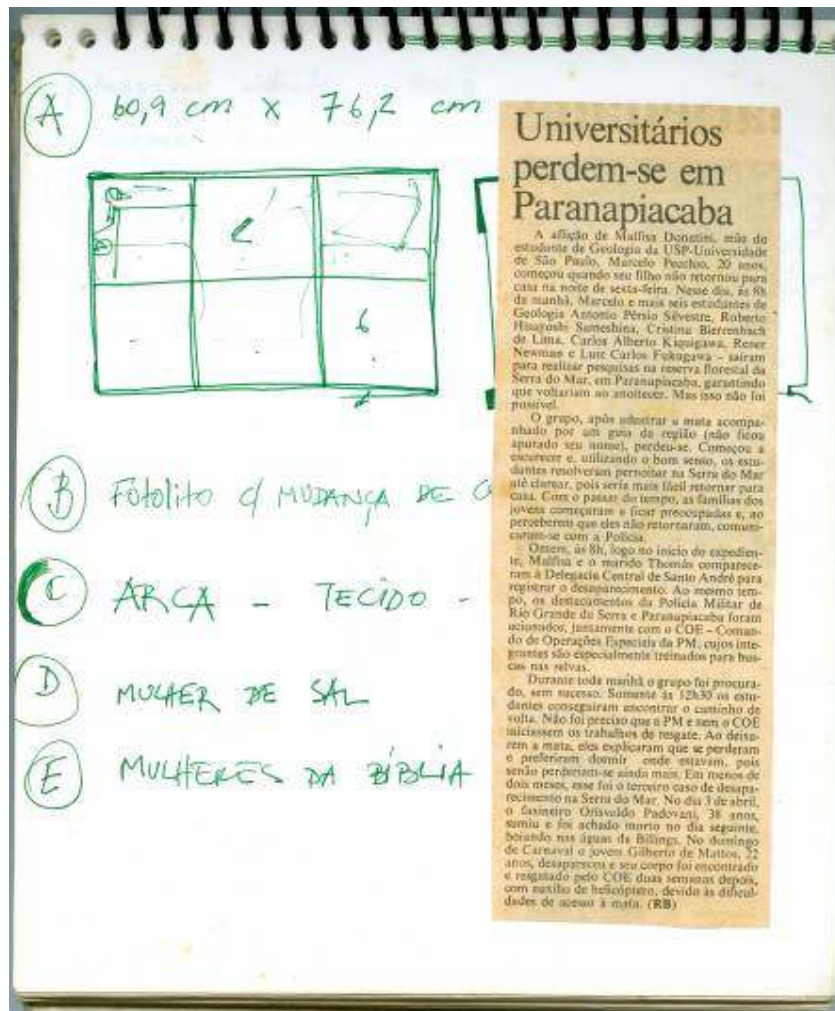 A 60,9 cm x 76,2 cm
6
B Fotolito c/ MUDANÇA DE
C ARCA - TECIDO -
D MULHER DE SAL
E MULHERES DA BÍBLIA
Universitários
perdem-se em
Paranapiacaba
A aflição de Malfisa Donatini, mãe do
estudante de Geologia da USP-Universidade
de São Paulo, Marcelo Pecchio, 20 anos,
começou quando seu filho não retornou para
casa na noite de sexta-feira. Nesse dia, às 8h
da manhã, Marcelo e mais seis estudantes de
Geologia Antonio Pérsio Silvestre, Roberto
Sameshina, Cristina Bierrenbach
de Lima, Carlos Alberto Kiquigawa, Rener
Newman e Luiz Carlos Fukugawa – saíram
para realizar pesquisas na reserva florestal da
Serra do Mar, em Paranapiacaba, garantindo
que voltariam ao anoitecer. Mas isso não foi
possível.
O grupo, após adentrar a mata acompa-
nhado por um guia da região (não ficou
apurado seu nome), perdeu-se. Começou a
escurecer e, utilizando o bom senso, os estu-
dantes resolveram pernoitar na Serra do Mar
até clarear, pois seria mais fácil retornar para
casa. Com o passar do tempo, as famílias dos
jovens começaram a ficar preocupadas e, ao
perceberem que eles não retornaram, comuni-
caram-se com a Polícia.
Ontem, às 8h, logo no início do expedien-
te, Malfisa e o marido Thomás comparece-
ram à Delegacia Central de Santo André para
registrar o desaparecimento. Ao mesmo tem-
po, os destacamentos da Polícia Militar de
Rio Grande da Serra e Paranapiacaba foram
acionados, juntamente com o COE – Coman-
do de Operações Especiais da PM, cujos inte-
grantes são especialmente treinados para bus-
cas nas selvas.
Durante toda manhã o grupo foi procura-
do, sem sucesso. Somente às 12h30 os estu-
dantes conseguiram encontrar o caminho de
volta. Não foi preciso que a PM e nem o COE
iniciassem os trabalhos de resgate. Ao deixa-
rem a mata, eles explicaram que se perderam
e preferiram dormir onde estavam, pois
senão perderiam-se ainda mais. Em menos de
dois meses, esse foi o terceiro caso de desapa-
recimento na Serra do Mar. No dia 3 de abril,
o faxineiro Orisvaldo Padovani, 38 anos,
sumiu e foi achado morto no dia seguinte,
boiando nas águas da Billings. No domingo
de Carnaval o jovem Gilberto de Mattos, 22
anos, desapareceu e seu corpo foi encontrado
e resgatado pelo COE duas semanas depois,
com auxílio de helicóptero, devido às dificul-
dades de acesso à mata. (RB)